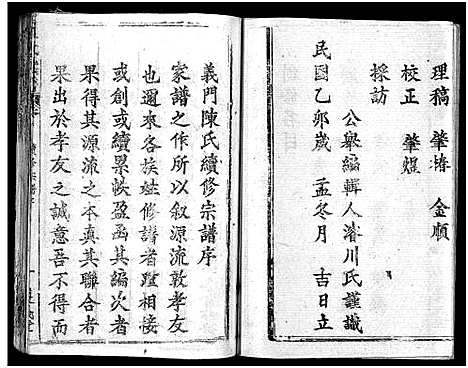 理稿 肇椿 金順
校正 肇煌
採訪
公舉編輯人濬川氏謹識
民國乙卯歲 孟冬月 吉日立
義門陳氏續修宗譜序
家譜之作所以叙源流敦孝友
也邇來各族姓修譜者踵相接
或創或續累帙盈函其編次者
果得其源流之本真其聯合者
果出於孝友之誠意吾不得而